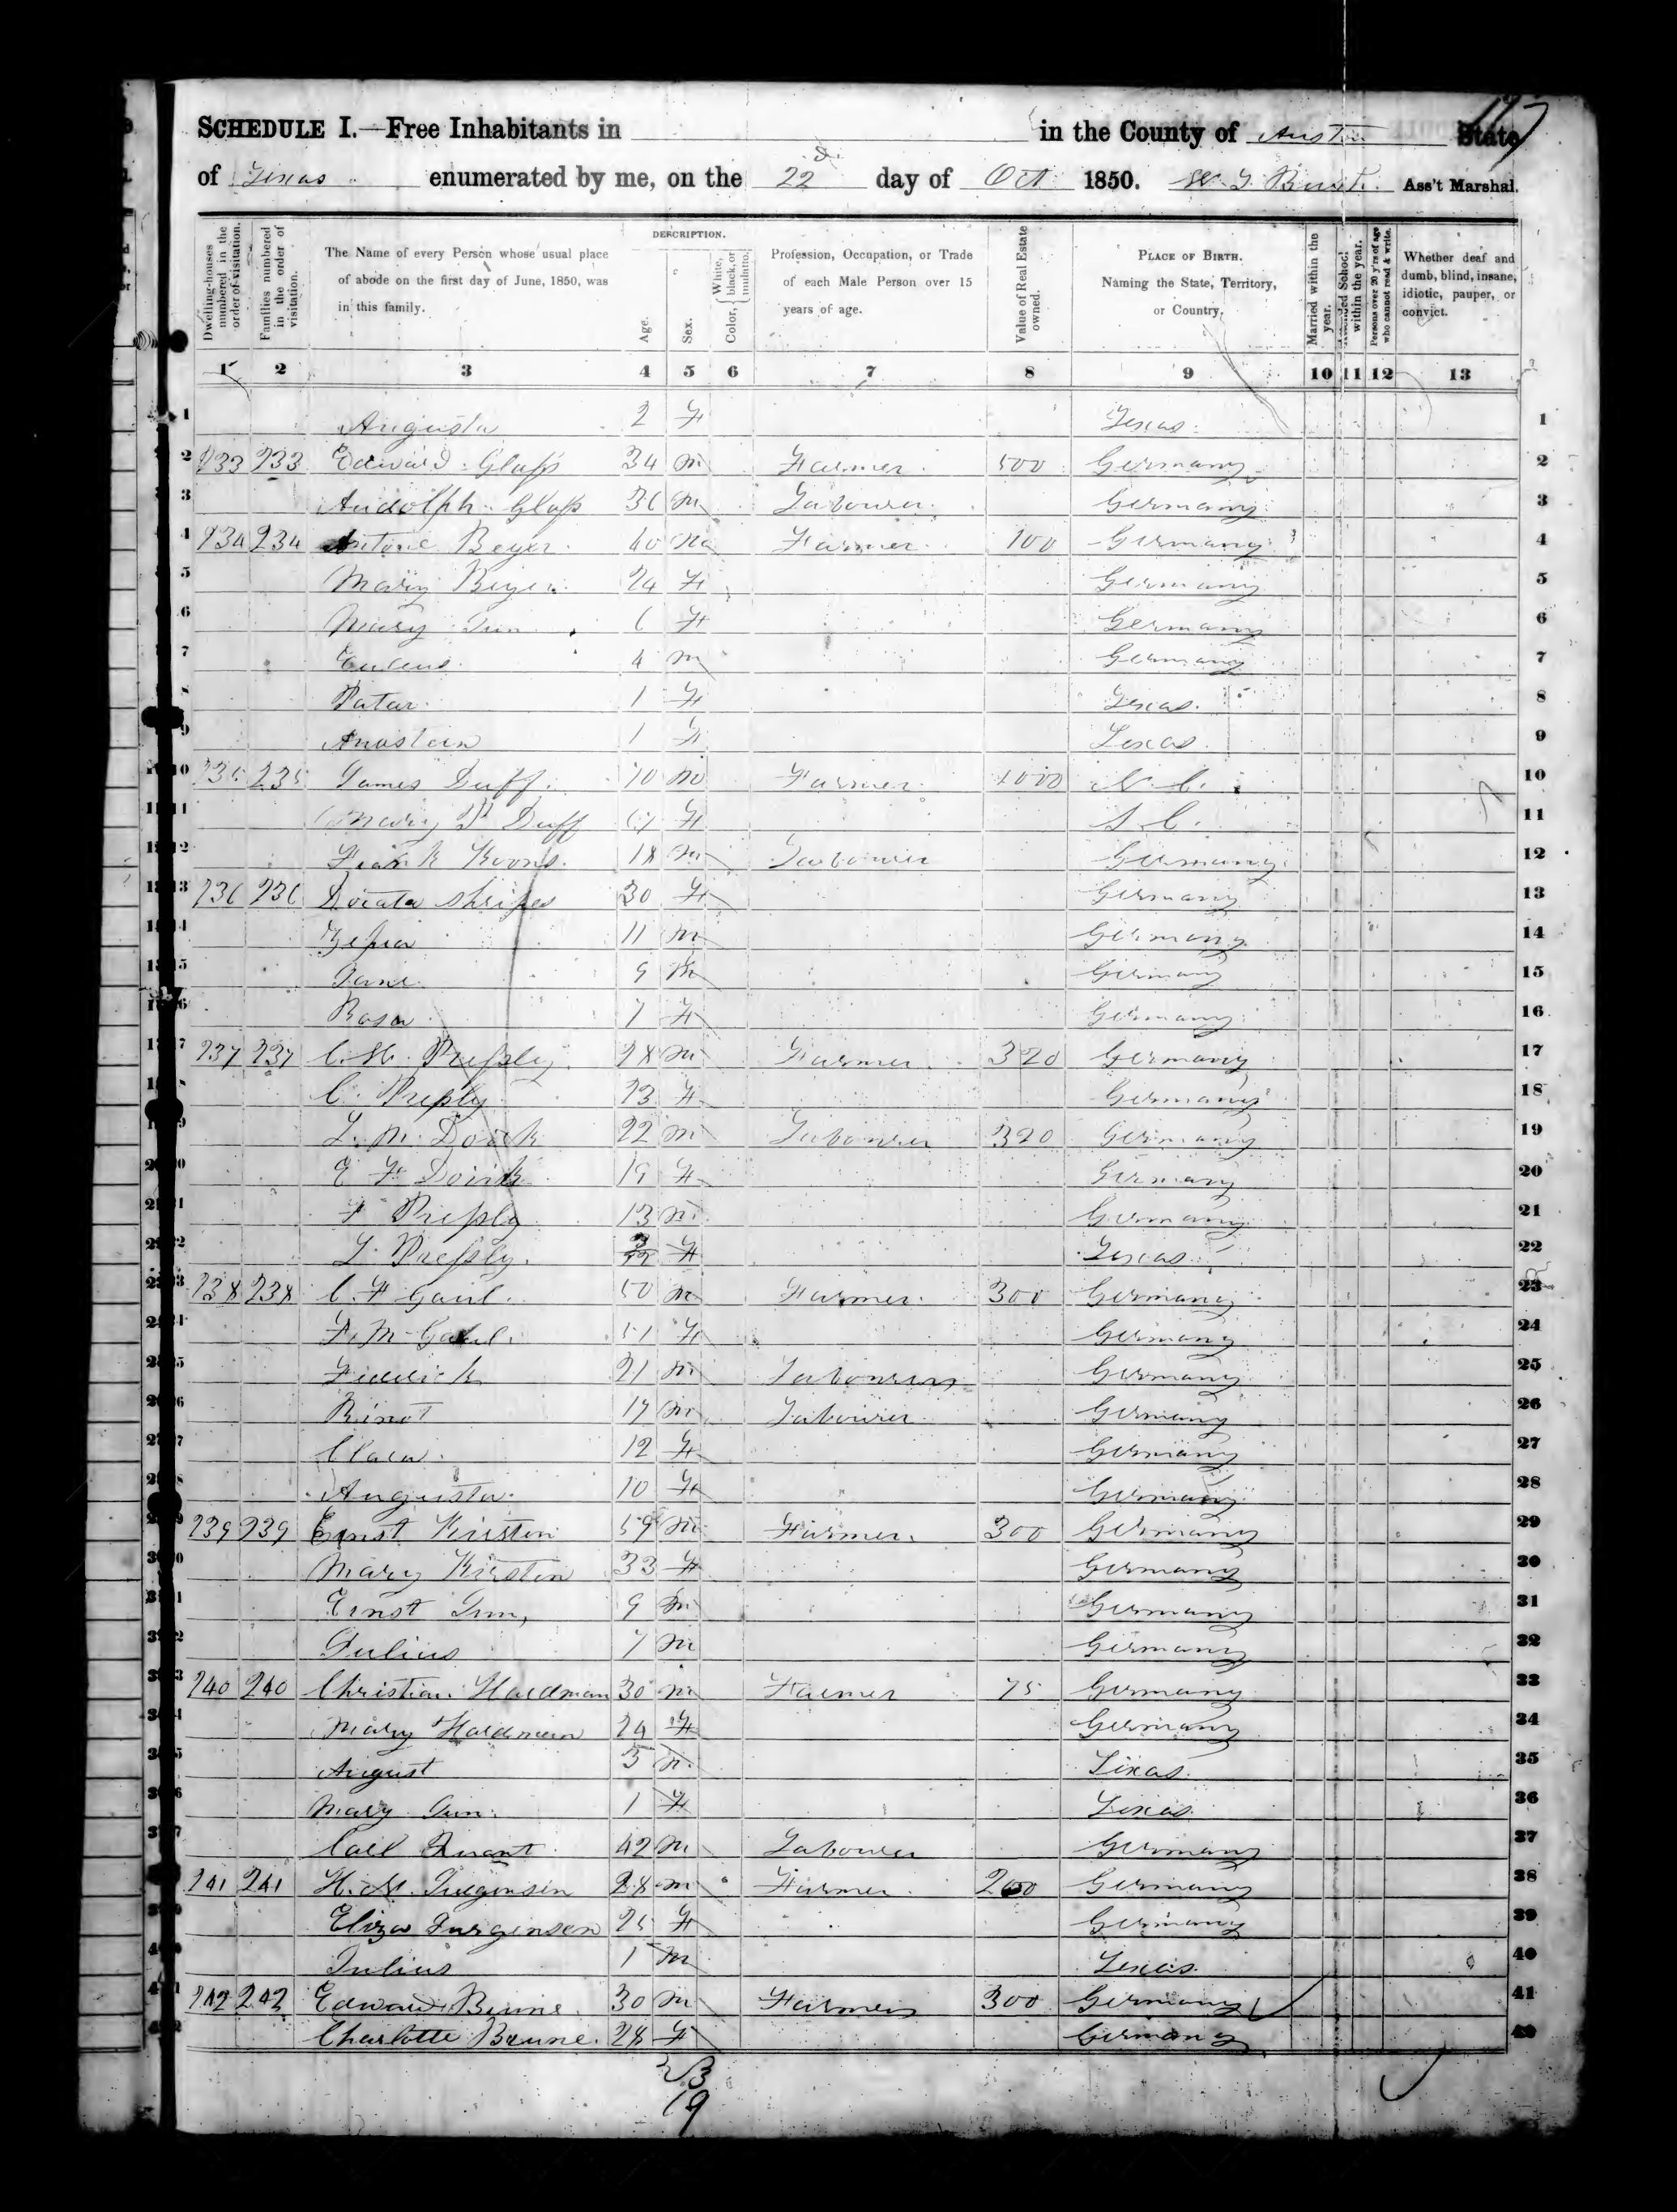 197
SCHEDULE I.—Free Inhabitants in in the County of Austin State
of Texas enumerated by me, on the 22d day of Oct 1850. Ass't Marshal.
DESCRIPTION.
Dwelling-houses numbered in the order of visitation.
Families numbered in the order of visitation.
The Name of every Person whose usual place of abode on the first day of June, 1850, was in this family.
Age.
Sex.
Color, { White, black, or mulatto.
Profession, Occupation, or Trade of each Male Person over 15 years of age.
Value of Real Estate owned.
PLACE OF BIRTH. Naming the State, Territory, or Country.
Married within the year.
Attended School within the year.
Persons over 20 y'rs of age who cannot read & write.
Whether deaf and dumb, blind, insane, idiotic, pauper, or convict.
1 2 3 4 5 6 7 8 9 10 11 12 13
1 Augusta 2 F Texas 1
2 233 233 Edward Glass 34 m Farmer 500 Germany 2
3 Glass 36 m Labourer Germany 3
4 234 234 Antone Beyer 40 m Farmer 100 Germany 4
5 Mary Beyer 24 F Germany 5
6 Mary Jun 6 F Germany 6
7 4 m Germany 7
8 1 F Texas 8
9 1 F Texas 9
10 235 235 James Duff 70 m Farmer N C. 10
11 Mary P Duff F S C. 11
12 Frank Koons 18 m Labourer Germany 12
13 236 236 30 F Germany 13
14 11 m Germany 14
15 Jane 9 m Germany 15
16 Rosa 7 F Germany 16
17 237 237 C. H. Pressly 28 m Farmer 320 Germany 17
18 C. Pressly 23 F Germany 18
19 L. M. 22 m Labourer 320 Germany 19
20 E F 19 F Germany 20
21 F Pressly 13 m Germany 21
22 L. Pressly F Texas 22
23 238 238 C. F Gaul 50 m Farmer 300 Germany 23
24 F. M Gaul 51 F Germany 24
25 Frederick 21 m Labourer Germany 25
26 Rinot 17 m Labourer Germany 26
27 Clara 12 F Germany 27
28 Augusta 10 F Germany 28
29 239 239 Ernst Kirsten 59 m Farmer 300 Germany 29
30 Mary Kirsten 33 F Germany 30
31 Ernst Jun, 9 m Germany 31
32 Julius 7 m Germany 32
33 240 240 Christian Haldman 30 m Farmer 75 Germany 33
34 Mary Haldman 24 F Germany 34
35 August 3 m Texas 35
36 Mary Jun. 1 F Texas 36
37 Carl 42 m Labourer Germany 37
38 241 241 H. M. Jurgensen 28 m Farmer 200 Germany 38
39 Eliza Jurgensen 25 F Germany 39
40 Julius 1 m Texas 40
41 242 242 Edward Brune 30 m Farmer 300 Germany 41
42 Charlotte Brune 28 F Germany 42
23
19